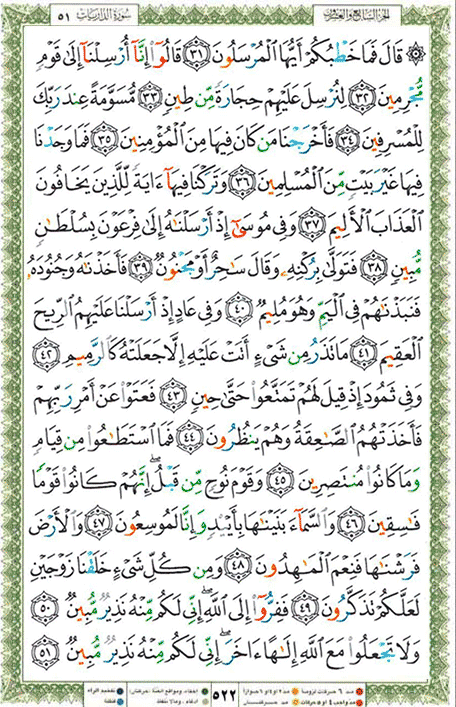 الجزء السابع والعشرون سورة الذاريات ٥١
۞ قَالَ فَمَا خَطْبُكُمْ أَيُّهَا الْمُرْسَلُونَ ٣١ قَالُوٓا۟ إِنَّآ أُرْسِلْنَآ إِلَىٰ قَوْمٍ
مُّجْرِمِينَ ٣٢ لِنُرْسِلَ عَلَيْهِمْ حِجَارَةً مِّن طِينٍ ٣٣ مُّسَوَّمَةً عِندَ رَبِّكَ
لِلْمُسْرِفِينَ ٣٤ فَأَخْرَجْنَا مَن كَانَ فِيهَا مِنَ الْمُؤْمِنِينَ ٣٥ فَمَا وَجَدْنَا
فِيهَا غَيْرَ بَيْتٍ مِّنَ الْمُسْلِمِينَ ٣٦ وَتَرَكْنَا فِيهَآ ءَايَةً لِّلَّذِينَ يَخَافُونَ
الْعَذَابَ الْأَلِيمَ ٣٧ وَفِى مُوسَىٰٓ إِذْ أَرْسَلْنَٰهُ إِلَىٰ فِرْعَوْنَ بِسُلْطَٰنٍ
مُّبِينٍ ٣٨ فَتَوَلَّىٰ بِرُكْنِهِۦ وَقَالَ سَٰحِرٌ أَوْ مَجْنُونٌ ٣٩ فَأَخَذْنَٰهُ وَجُنُودَهُۥ
فَنَبَذْنَٰهُمْ فِى الْيَمِّ وَهُوَ مُلِيمٌ ٤٠ وَفِى عَادٍ إِذْ أَرْسَلْنَا عَلَيْهِمُ الرِّيحَ
الْعَقِيمَ ٤١ مَا تَذَرُ مِن شَىْءٍ أَتَتْ عَلَيْهِ إِلَّا جَعَلَتْهُ كَالرَّمِيمِ ٤٢
وَفِى ثَمُودَ إِذْ قِيلَ لَهُمْ تَمَتَّعُوا۟ حَتَّىٰ حِينٍ ٤٣ فَعَتَوْا۟ عَنْ أَمْرِ رَبِّهِمْ
فَأَخَذَتْهُمُ الصَّٰعِقَةُ وَهُمْ يَنظُرُونَ ٤٤ فَمَا اسْتَطَٰعُوا۟ مِن قِيَامٍ
وَمَا كَانُوا۟ مُنتَصِرِينَ ٤٥ وَقَوْمَ نُوحٍ مِّن قَبْلُ ۖ إِنَّهُمْ كَانُوا۟ قَوْمًا
فَٰسِقِينَ ٤٦ وَالسَّمَآءَ بَنَيْنَٰهَا بِأَيْي۟دٍ وَإِنَّا لَمُوسِعُونَ ٤٧ وَالْأَرْضَ
فَرَشْنَٰهَا فَنِعْمَ الْمَٰهِدُونَ ٤٨ وَمِن كُلِّ شَىْءٍ خَلَقْنَا زَوْجَيْنِ
لَعَلَّكُمْ تَذَكَّرُونَ ٤٩ فَفِرُّوٓا۟ إِلَى اللَّهِ ۖ إِنِّى لَكُم مِّنْهُ نَذِيرٌ مُّبِينٌ ٥٠
وَلَا تَجْعَلُوا۟ مَعَ اللَّهِ إِلَٰهًا ءَاخَرَ ۖ إِنِّى لَكُم مِّنْهُ نَذِيرٌ مُّبِينٌ ٥١
٥٢٢